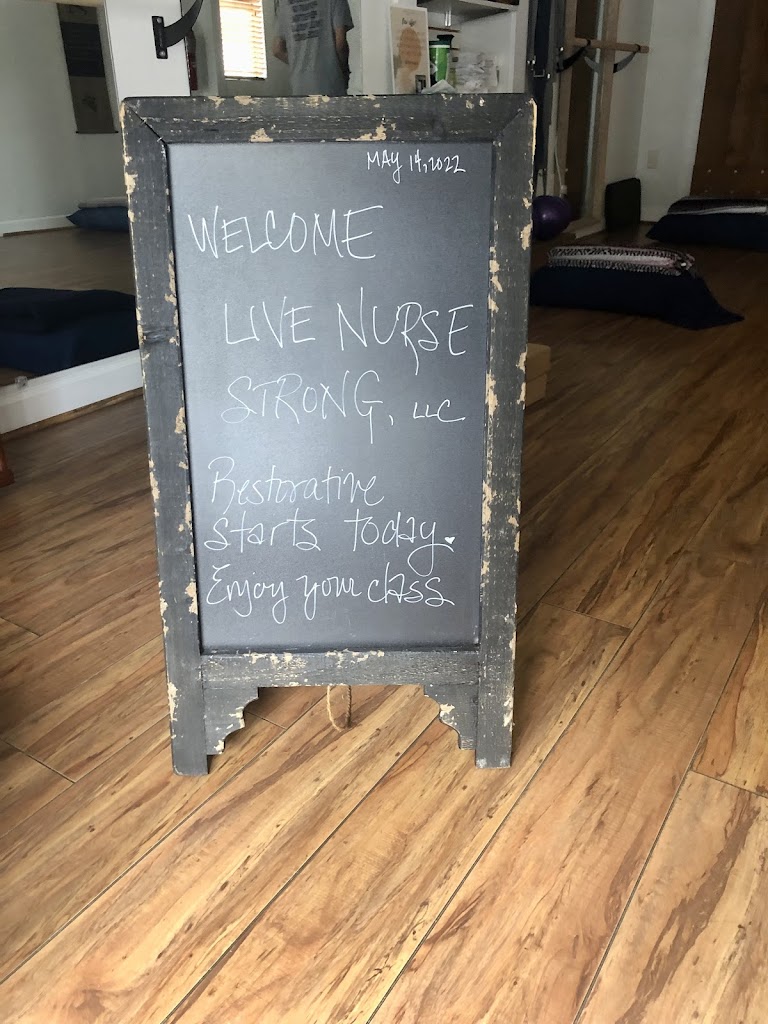 MAY 14, 2022
WELCOME
LIVE NURSE
STRONG, LLC
Restorative
starts today.
Enjoy your class